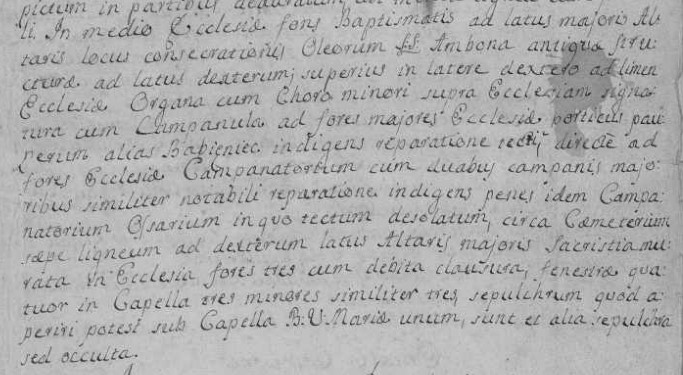 pictum in partibus deauratum
li. In medio Ecclesiæ fons Baptismatis ad latus majoris Al-
taris locus consecrationis Oleorum SS. Ambona antiquæ stru-
cturæ ad latus dexterum; superius in latere dextero ad limen
Ecclesiæ Organa cum Choro minori supra Ecclesiam signa-
tura cum Campanula ad fores majores Ecclesiæ porticus pau-
perum alias Babieniec indigens reparatione tecti directe ad
fores Ecclesiæ Campanatorium cum duabus campanis majo-
ribus similiter notabili reparatione indigens penes idem Campa-
natorium Ossarium in quo tectum desolatum, circa Cæmeterium
sæpe ligneum ad dexterum latus Altaris majoris Sacristia mu-
rata in Ecclesia fores tres cum debita clausura, fenestræ qua-
tuor in Capella tres minores similiter tres, sepulchrum quod a-
periri potest sub Capella B.V. Mariæ unum, sunt et alia sepulchra
sed occulta.